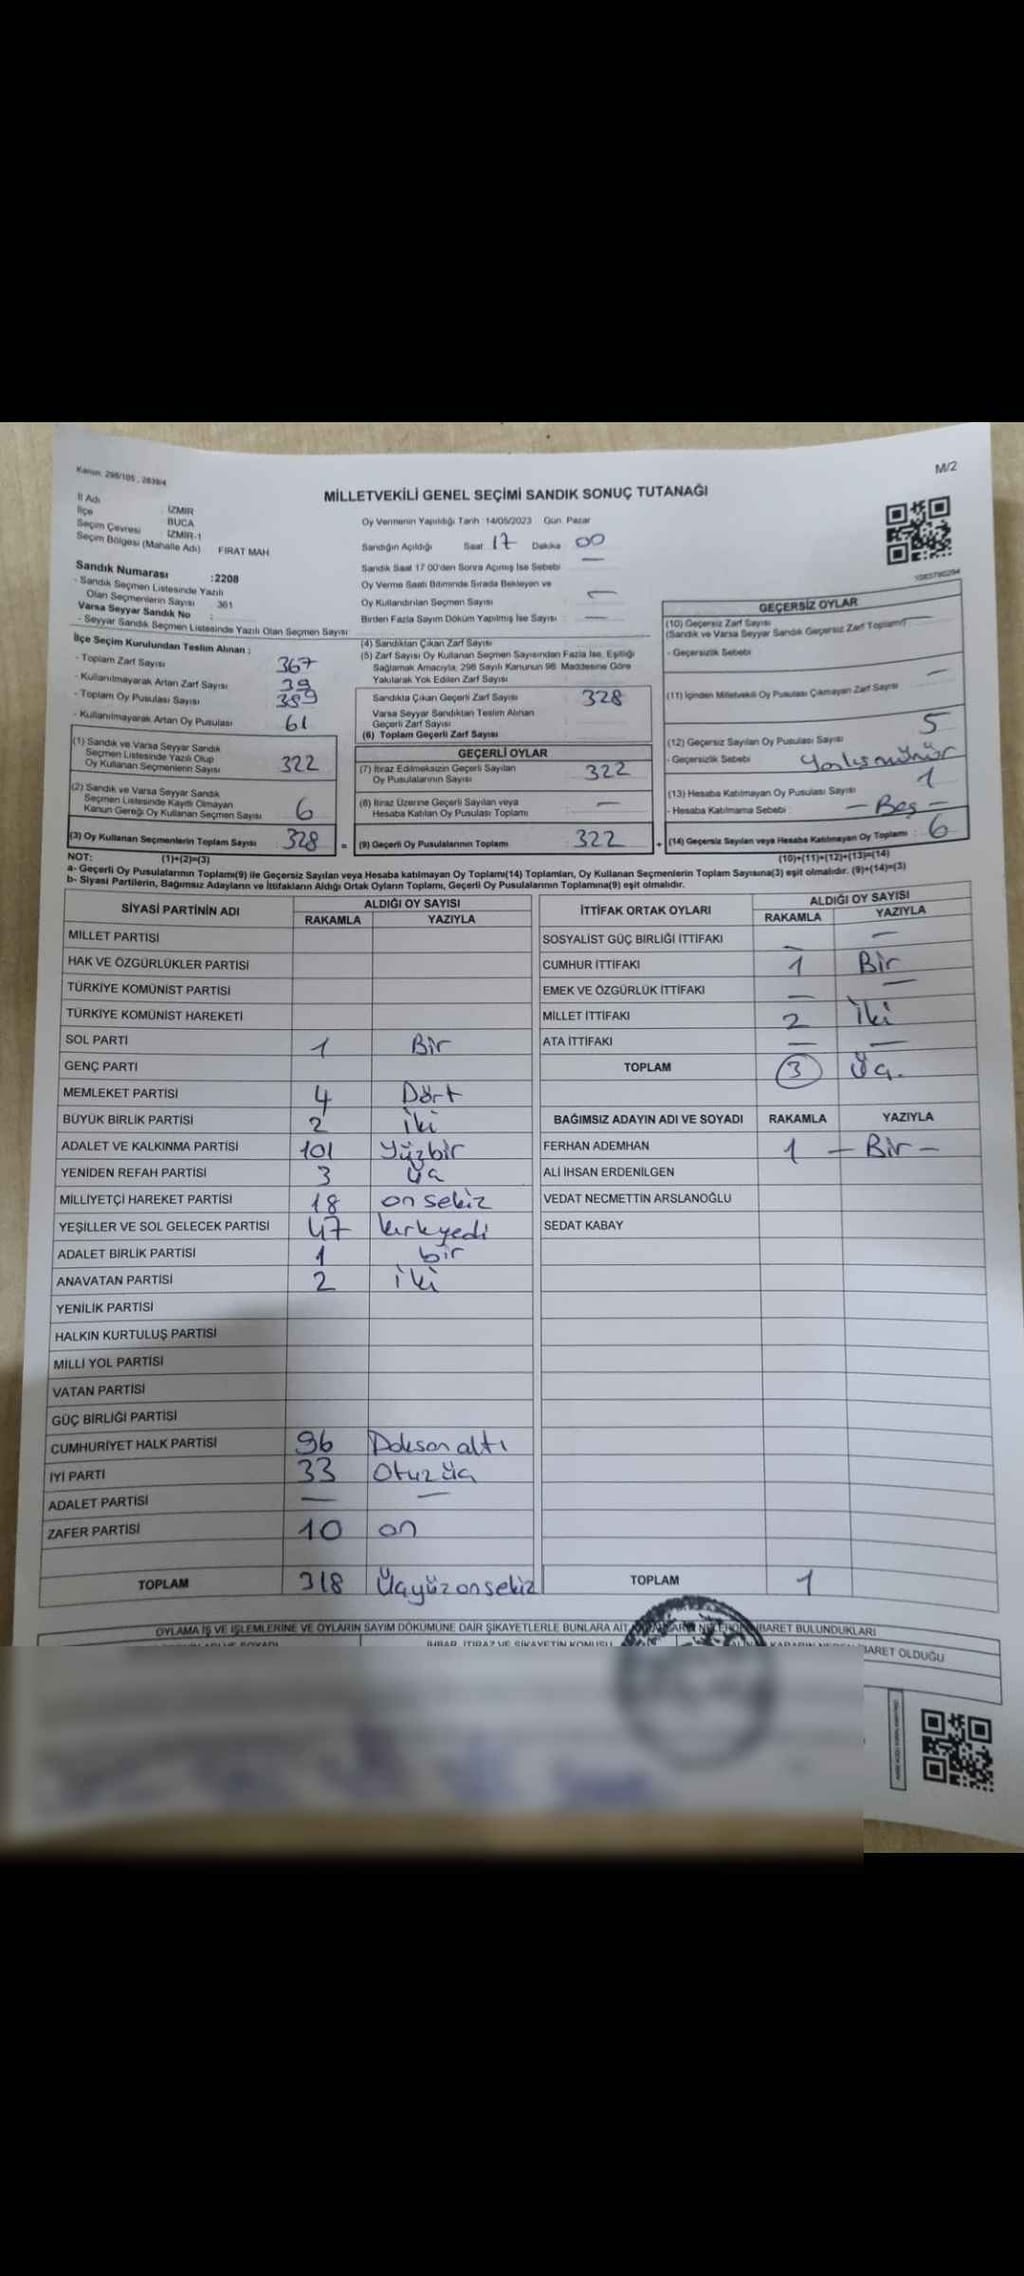 Kanun: 298/105, 2839/4
M/2
MİLLETVEKİLİ GENEL SEÇİMİ SANDIK SONUÇ TUTANAĞI
İl Adı : İZMİR
İlçe : BUCA
Seçim Çevresi : İZMİR-1
Seçim Bölgesi (Mahalle Adı) FIRAT MAH
Sandık Numarası :2208
- Sandık Seçmen Listesinde Yazılı
Olan Seçmenlerin Sayısı 361
Varsa Seyyar Sandık No :
- Seyyar Sandık Seçmen Listesinde Yazılı Olan Seçmen Sayısı:
Oy Vermenin Yapıldığı Tarih 14/05/2023 Gün: Pazar
Sandığın Açıldığı Saat 17 Dakika 00
Sandık Saat 17:00'den Sonra Açılmış İse Sebebi —
Oy Verme Saati Bitiminde Sırada Bekleyen ve
Oy Kullandırılan Seçmen Sayısı —
Birden Fazla Sayım Döküm Yapılmış İse Sayısı —
İlçe Seçim Kurulundan Teslim Alınan :
- Toplam Zarf Sayısı 367
- Kullanılmayarak Artan Zarf Sayısı 39
- Toplam Oy Pusulası Sayısı 389
- Kullanılmayarak Artan Oy Pusulası 61
(1) Sandık ve Varsa Seyyar Sandık
Seçmen Listesinde Yazılı Olup
Oy Kullanan Seçmenlerin Sayısı 322
(2) Sandık ve Varsa Seyyar Sandık
Seçmen Listesinde Kayıtlı Olmayan
Kanun Gereği Oy Kullanan Seçmen Sayısı 6
(3) Oy Kullanan Seçmenlerin Toplam Sayısı 328 =
(4) Sandıktan Çıkan Zarf Sayısı
(5) Zarf Sayısı Oy Kullanan Seçmen Sayısından Fazla İse, Eşitliği
Sağlamak Amacıyla, 298 Sayılı Kanunun 98. Maddesine Göre
Yakılarak Yok Edilen Zarf Sayısı
Sandıkta Çıkan Geçerli Zarf Sayısı 328
Varsa Seyyar Sandıktan Teslim Alınan
Geçerli Zarf Sayısı
(6) Toplam Geçerli Zarf Sayısı
GEÇERLİ OYLAR
(7) İtiraz Edilmeksizin Geçerli Sayılan
Oy Pusulalarının Sayısı 322
(8) İtiraz Üzerine Geçerli Sayılan veya
Hesaba Katılan Oy Pusulası Toplamı —
(9) Geçerli Oy Pusulalarının Toplamı 322 +
GEÇERSİZ OYLAR
(10) Geçersiz Zarf Sayısı
(Sandık ve Varsa Seyyar Sandık Geçersiz Zarf Toplamı) —
- Geçersizlik Sebebi
(11) İçinden Milletvekili Oy Pusulası Çıkmayan Zarf Sayısı —
(12) Geçersiz Sayılan Oy Pusulası Sayısı 5
- Geçersizlik Sebebi
(13) Hesaba Katılmayan Oy Pusulası Sayısı 1
- Hesaba Katılmama Sebebi : — Beş —
(14) Geçersiz Sayılan veya Hesaba Katılmayan Oy Toplamı : 6
NOT: (1)+(2)=(3) (10)+(11)+(12)+(13)=(14)
a- Geçerli Oy Pusulalarının Toplamı(9) ile Geçersiz Sayılan veya Hesaba katılmayan Oy Toplamı(14) Toplamları, Oy Kullanan Seçmenlerin Toplam Sayısına(3) eşit olmalıdır. (9)+(14)=(3)
b- Siyasi Partilerin, Bağımsız Adayların ve İttifakların Aldığı Ortak Oyların Toplamı, Geçerli Oy Pusulalarının Toplamına(9) eşit olmalıdır.
SİYASİ PARTİNİN ADI ALDIĞI OY SAYISI
RAKAMLA YAZIYLA
MİLLET PARTİSİ
HAK VE ÖZGÜRLÜKLER PARTİSİ
TÜRKİYE KOMÜNİST PARTİSİ
TÜRKİYE KOMÜNİST HAREKETİ
SOL PARTİ 1 Bir
GENÇ PARTİ
MEMLEKET PARTİSİ 4 Dört
BÜYÜK BİRLİK PARTİSİ 2 iki
ADALET VE KALKINMA PARTİSİ 101 Yüzbir
YENİDEN REFAH PARTİSİ 3 üç
MİLLİYETÇİ HAREKET PARTİSİ 18 on sekiz
YEŞİLLER VE SOL GELECEK PARTİSİ 47 kırkyedi
ADALET BİRLİK PARTİSİ 1 bir
ANAVATAN PARTİSİ 2 iki
YENİLİK PARTİSİ
HALKIN KURTULUŞ PARTİSİ
MİLLİ YOL PARTİSİ
VATAN PARTİSİ
GÜÇ BİRLİĞİ PARTİSİ
CUMHURİYET HALK PARTİSİ 96 Doksan altı
İYİ PARTİ 33 Otuz üç
ADALET PARTİSİ — —
ZAFER PARTİSİ 10 on
TOPLAM 318 Üçyüz onsekiz
İTTİFAK ORTAK OYLARI ALDIĞI OY SAYISI
RAKAMLA YAZIYLA
SOSYALİST GÜÇ BİRLİĞİ İTTİFAKI — —
CUMHUR İTTİFAKI 1 Bir
EMEK VE ÖZGÜRLÜK İTTİFAKI — —
MİLLET İTTİFAKI 2 İki
ATA İTTİFAKI — —
TOPLAM 3 Üç.
BAĞIMSIZ ADAYIN ADI VE SOYADI RAKAMLA YAZIYLA
FERHAN ADEMHAN 1 — Bir —
ALİ İHSAN ERDENİLGEN
VEDAT NECMETTİN ARSLANOĞLU
SEDAT KABAY
TOPLAM 1
OYLAMA İŞ VE İŞLEMLERİNE VE OYLARIN SAYIM DÖKÜMÜNE DAİR ŞİKAYETLERLE BUNLARA AİT İBARET BULUNDUKLARI
İHBAR, İTİRAZ VE ŞİKAYETİN KONUSU
İBARET OLDUĞU